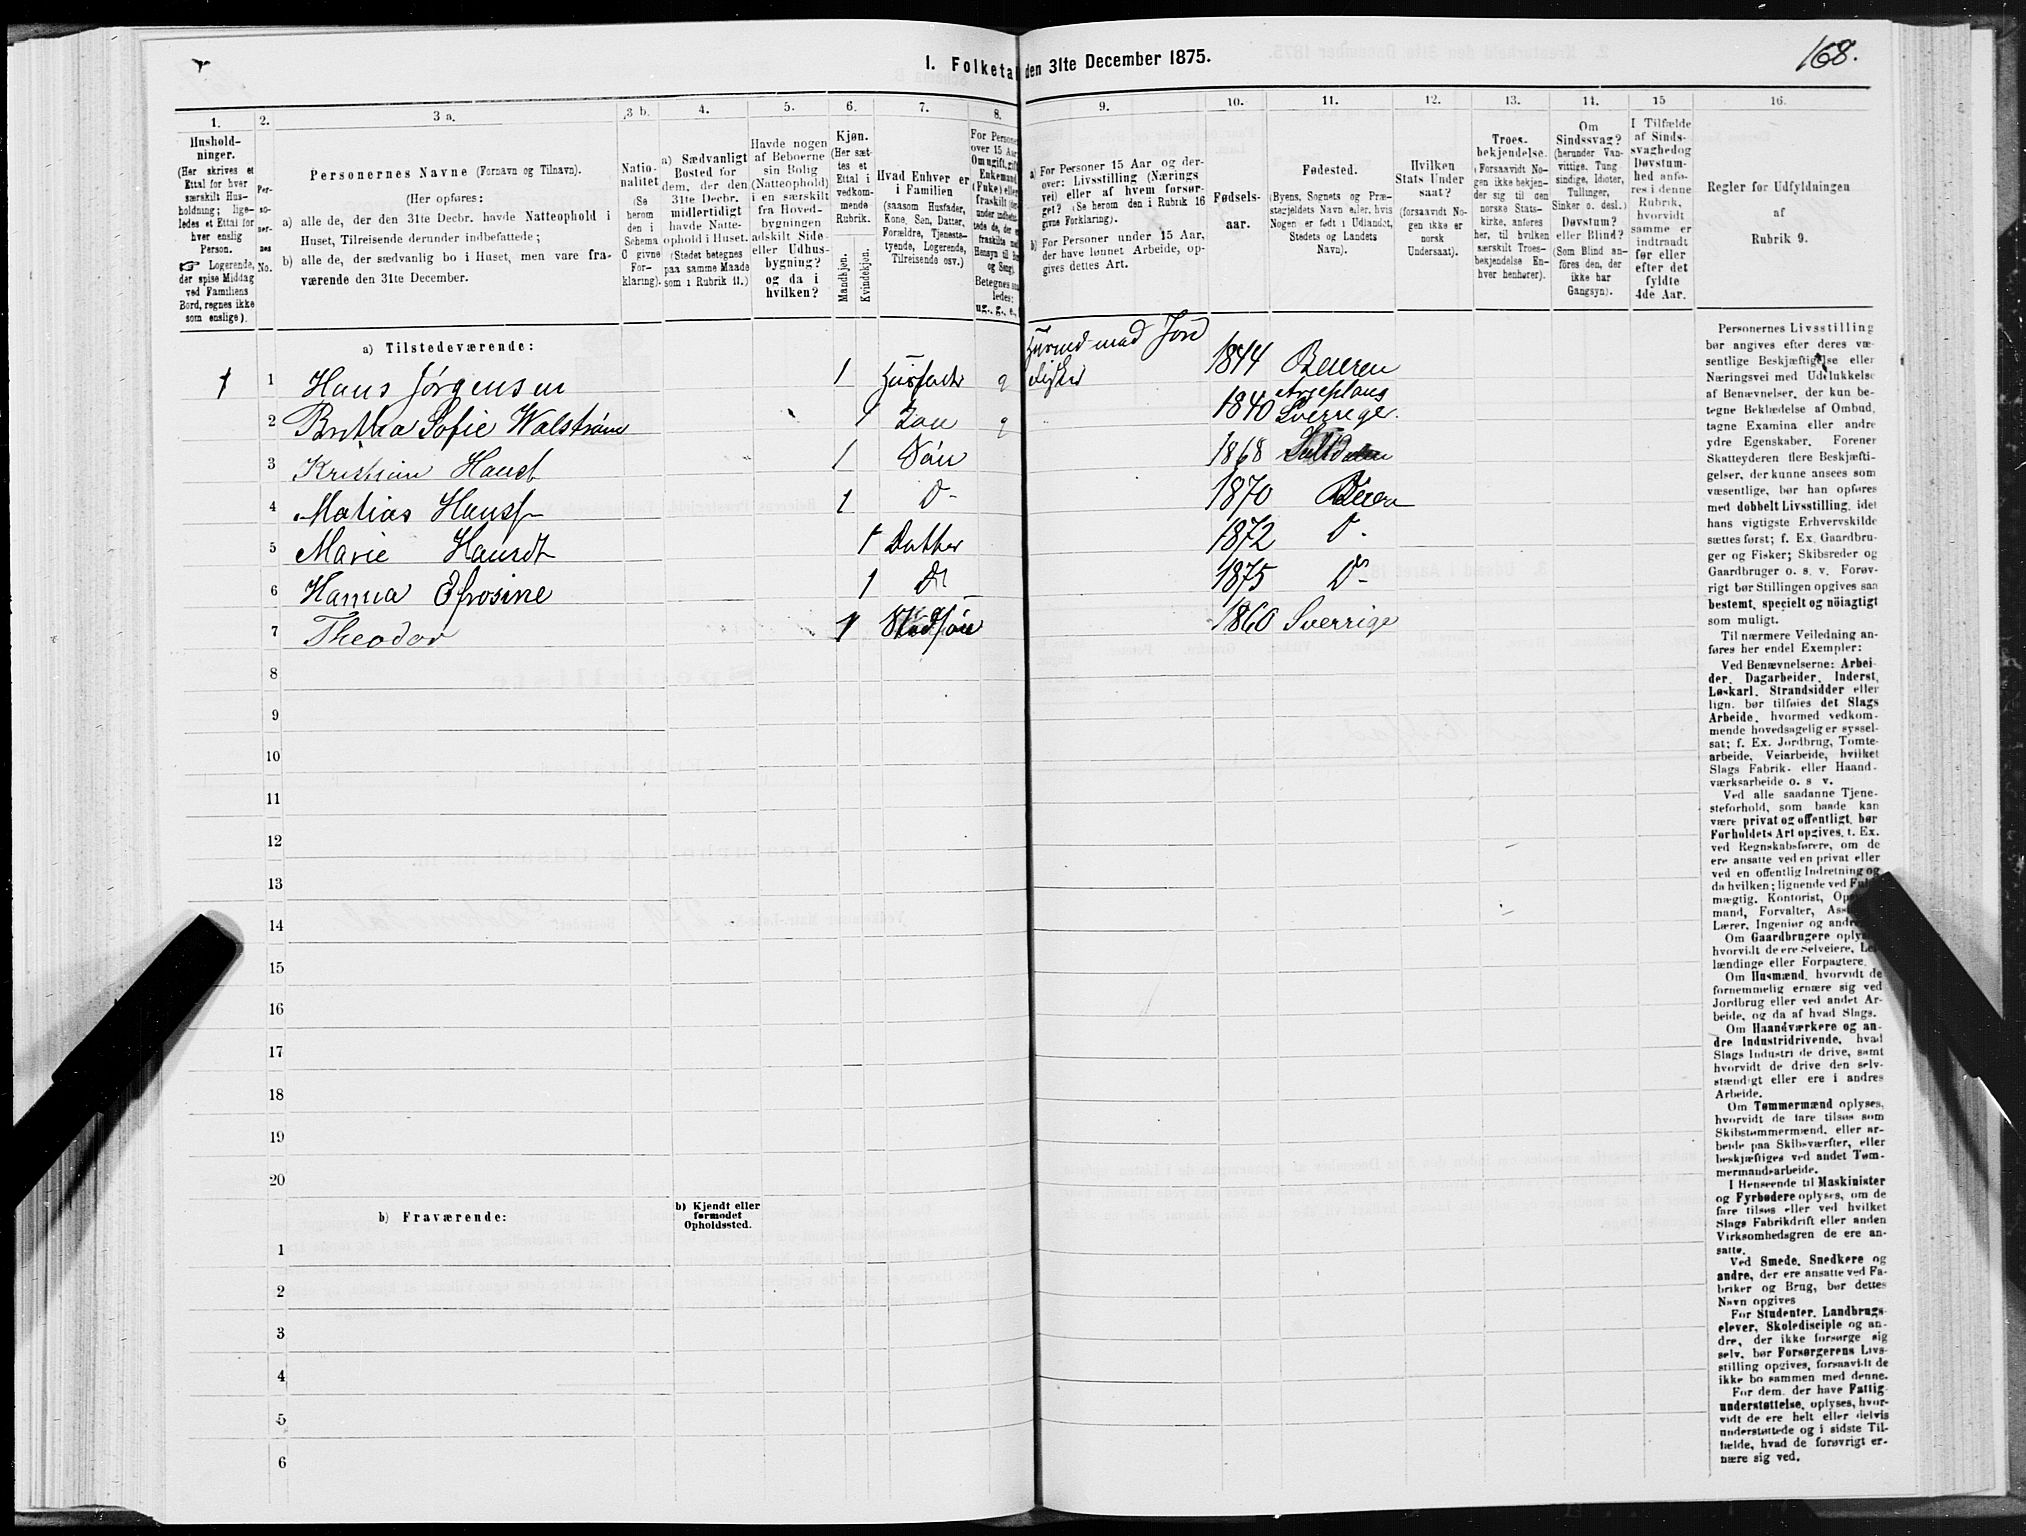 1. Folketal den 31te December 1875.
168.
1.
Hushold-
ninger.
(Her skrives et
Ettal for hver
særskilt Hus-
holdning; lige-
ledes et Ettal for
hver enslig
Person.
☞ Logerende,
der spise Middag
ved Familiens
Bord, regnes ikke
som enslige).
2.
Per-
so-
ner-
nes
No.
3 a.
Personernes Navne (Fornavn og Tilnavn).
(Her opføres:
a) alle de, der den 31te Decbr. havde Natteophold i
Huset, Tilreisende derunder indbefattede;
b) alle de, der sædvanlig bo i Huset, men vare fra-
værende den 31te December.
3 b.
Natio-
nalitet
(Se
herom
den i
Schema
C givne
For-
klaring).
4.
a) Sædvanligt
Bosted for
dem, der den
31te Decbr.
midlertidigt
havde Natte-
ophold i Huset.
(Stedet betegnes
paa samme Maade
som i Rubrik 11.)
5.
Havde nogen
af Beboerne
sin Bolig
(Natteophold)
i en særskilt
fra Hoved-
bygningen
adskilt Side-
eller Udhus-
bygning?
og da i
hvilken?
6.
Kjøn.
(Her sæt-
tes et
Ettal i
vedkom-
mende
Rubrik.
Mandkjøn.
Kvindekjøn.
7.
Hvad Enhver er
i Familien
(saasom Husfader,
Kone, Søn, Datter,
Forældre, Tjeneste-
tyende, Logerende,
Tilreisende osv.)
8.
For Personer
over 15 Aar
Om ugift, gift
Enkemand
(Enke) eller
fraskilt
Betegnes saa-
ledes:
ug., g., e.,
9.
a) For Personer 15 Aar og der-
over: Livsstilling (Nærings-
vei) eller af hvem forsør-
get? (Se herom den i Rubrik 16
givne Forklaring).
b) For Personer under 15 Aar,
der have lønnet Arbeide, op-
gives dettes Art.
10.
Fødsels-
aar.
11.
Fødested.
(Byens, Sognets og Præ-
stegjeldets Navn eller, hvis
Nogen er født i Udlandet,
Stedets og Landets
Navn).
12.
Hvilken
Stats Under
saat?
(forsaavidt No-
gen ikke er
norsk
Undersaat).
13.
Troes-
bekjendelse.
(Forsaavidt No-
gen ikke bekjen-
der sig til den
norske Stats-
kirke, anføres
her, til hvilken
særskilt Troes-
bekjendelse En-
hver henhører).
14.
Om
Sindssvag?
(herunder Van-
vittige, Tung
sindige, Idioter,
Tullinger,
Sinker o. desl.)
Døvstum?
eller Blind?
(Som Blind an-
føres den, der
ikke har
Gangsyn).
15
I Tilfælde
af Sinds-
svaghed og
Døvstum-
hed anfø-
res i denne
Rubrik,
hvorvidt
samme er
indtraadt
før eller
efter det
fyldte
4de Aar.
16.
Regler for Udfyldningen
af
Rubrik 9.
a) Tilstedeværende:
Husmd med Jord
1 1 Hans Jørgensen 1 Husfader g Fisker 1844 Beieren
Arjeplaug
2 Britha Sofie Walstrøm 1 Kone g 1840 Sverrige.
3 Kristian Hans 1 Søn 1868
4 Matias Hans 1 D- 1870 Beieren
5 Marie Hansdt 1 Datter 1872 D-
6 Hanna Efrosine 1 D 1875 D-
7 Theodor 1 Stedsøn 1860 Sverrige
8
9
10
11
12
13
14
15
16
17
18
19
20
b) Fraværende:
b) Kjendt eller
formodet
Opholdssted.
1
2
3
4
5
6
Personernes Livsstilling
bør angives efter deres væ-
sentlige Beskjæftigelse eller
Næringsvei med Udelukkelse
af Benævnelser, der kun be-
tegne Beklædelse af Ombud,
tagne Examina eller andre
ydre Egenskaber. Forener
Skatteyderen flere Beskjæfti-
gelser, der kunne ansees som
væsentlige, bør han opføres
med dobbelt Livsstilling, idet
hans vigtigste Erhvervskilde
sættes først; f. Ex. Gaardbru-
ger og Fisker; Skibsreder og
Gaardbruger o. s. v. Forøv-
rigt bør Stillingen opgives saa
bestemt, specielt og nöiagtigt
som muligt.
Til nærmere Veiledning an-
føres her endel Exempler:
Ved Benævnelserne: Arbei-
der, Dagarbeider, Inderst,
Løskarl, Strandsidder eller
lign. bør tilføies det Slags
Arbeide, hvormed vedkom-
mende hovedsagelig er syssel-
sat; f. Ex. Jordbrug, Tomte-
arbeide, Veiarbeide, hvilket
Slags Fabrik- eller Haand-
værksarbeide o. s v.
Ved alle saadanne Tjene-
steforhold, som baade kan
være privat og offentligt, bør
Forholdets Art opgives, t. Ex.
ved Regnskabsførere, om de
ere ansatte ved en privat eller
ved en offentlig Indretning og
da hvilken; lignende ved Fuld-
mægtig, Kontorist, Opsyns-
mand, Forvalter, Assistent,
Lærer, Ingeniør og andre.
Om Gaardbrugere oplyses,
hvorvidt de ere Selveiere, Lei-
lændinge eller Forpagtere.
Om Husmænd, hvorvidt de
fornemmelig ernære sig ved
Jordbrug eller ved andet Ar-
beide, og da af hvad Slags.
Om Haandværkere og an-
dre Industridrivende, hvad
Slags Industri de drive, samt
hvorvidt de drive den selv-
stændigt eller ere i andres
Arbeide.
Om Tømmermænd oplyses,
hvorvidt de fare tilsøs som
Skibstømmermænd, eller ar-
beide paa Skibsværfter, eller
beskjæftiges ved andet Tøm-
mermandsarbeide.
I Henseende til Maskinister
og Fyrbødere oplyses, om de
fare tilsøs eller ved hvilket
Slags Fabrikdrift eller anden
Virksomhedsgren de ere an-
satte.
Ved Smede, Snedkere og
andre, der ere ansatte ved Fa-
briker og Brug, bør dettes
Navn opgives
For Studenter, Landbrugs-
elever, Skoledisciple og an-
dre, der ikke forsørge sig
selv, bør Forsørgerens Livs-
stilling opgives, forsaavidt de
ikke bo sammen med denne.
For dem, der have Fattig-
understøttelse, oplyses, hvor-
vidt de ere helt eller delvis
understøttede og i sidste Til-
fælde, hvad de forøvrigt er-
nære sig ved.